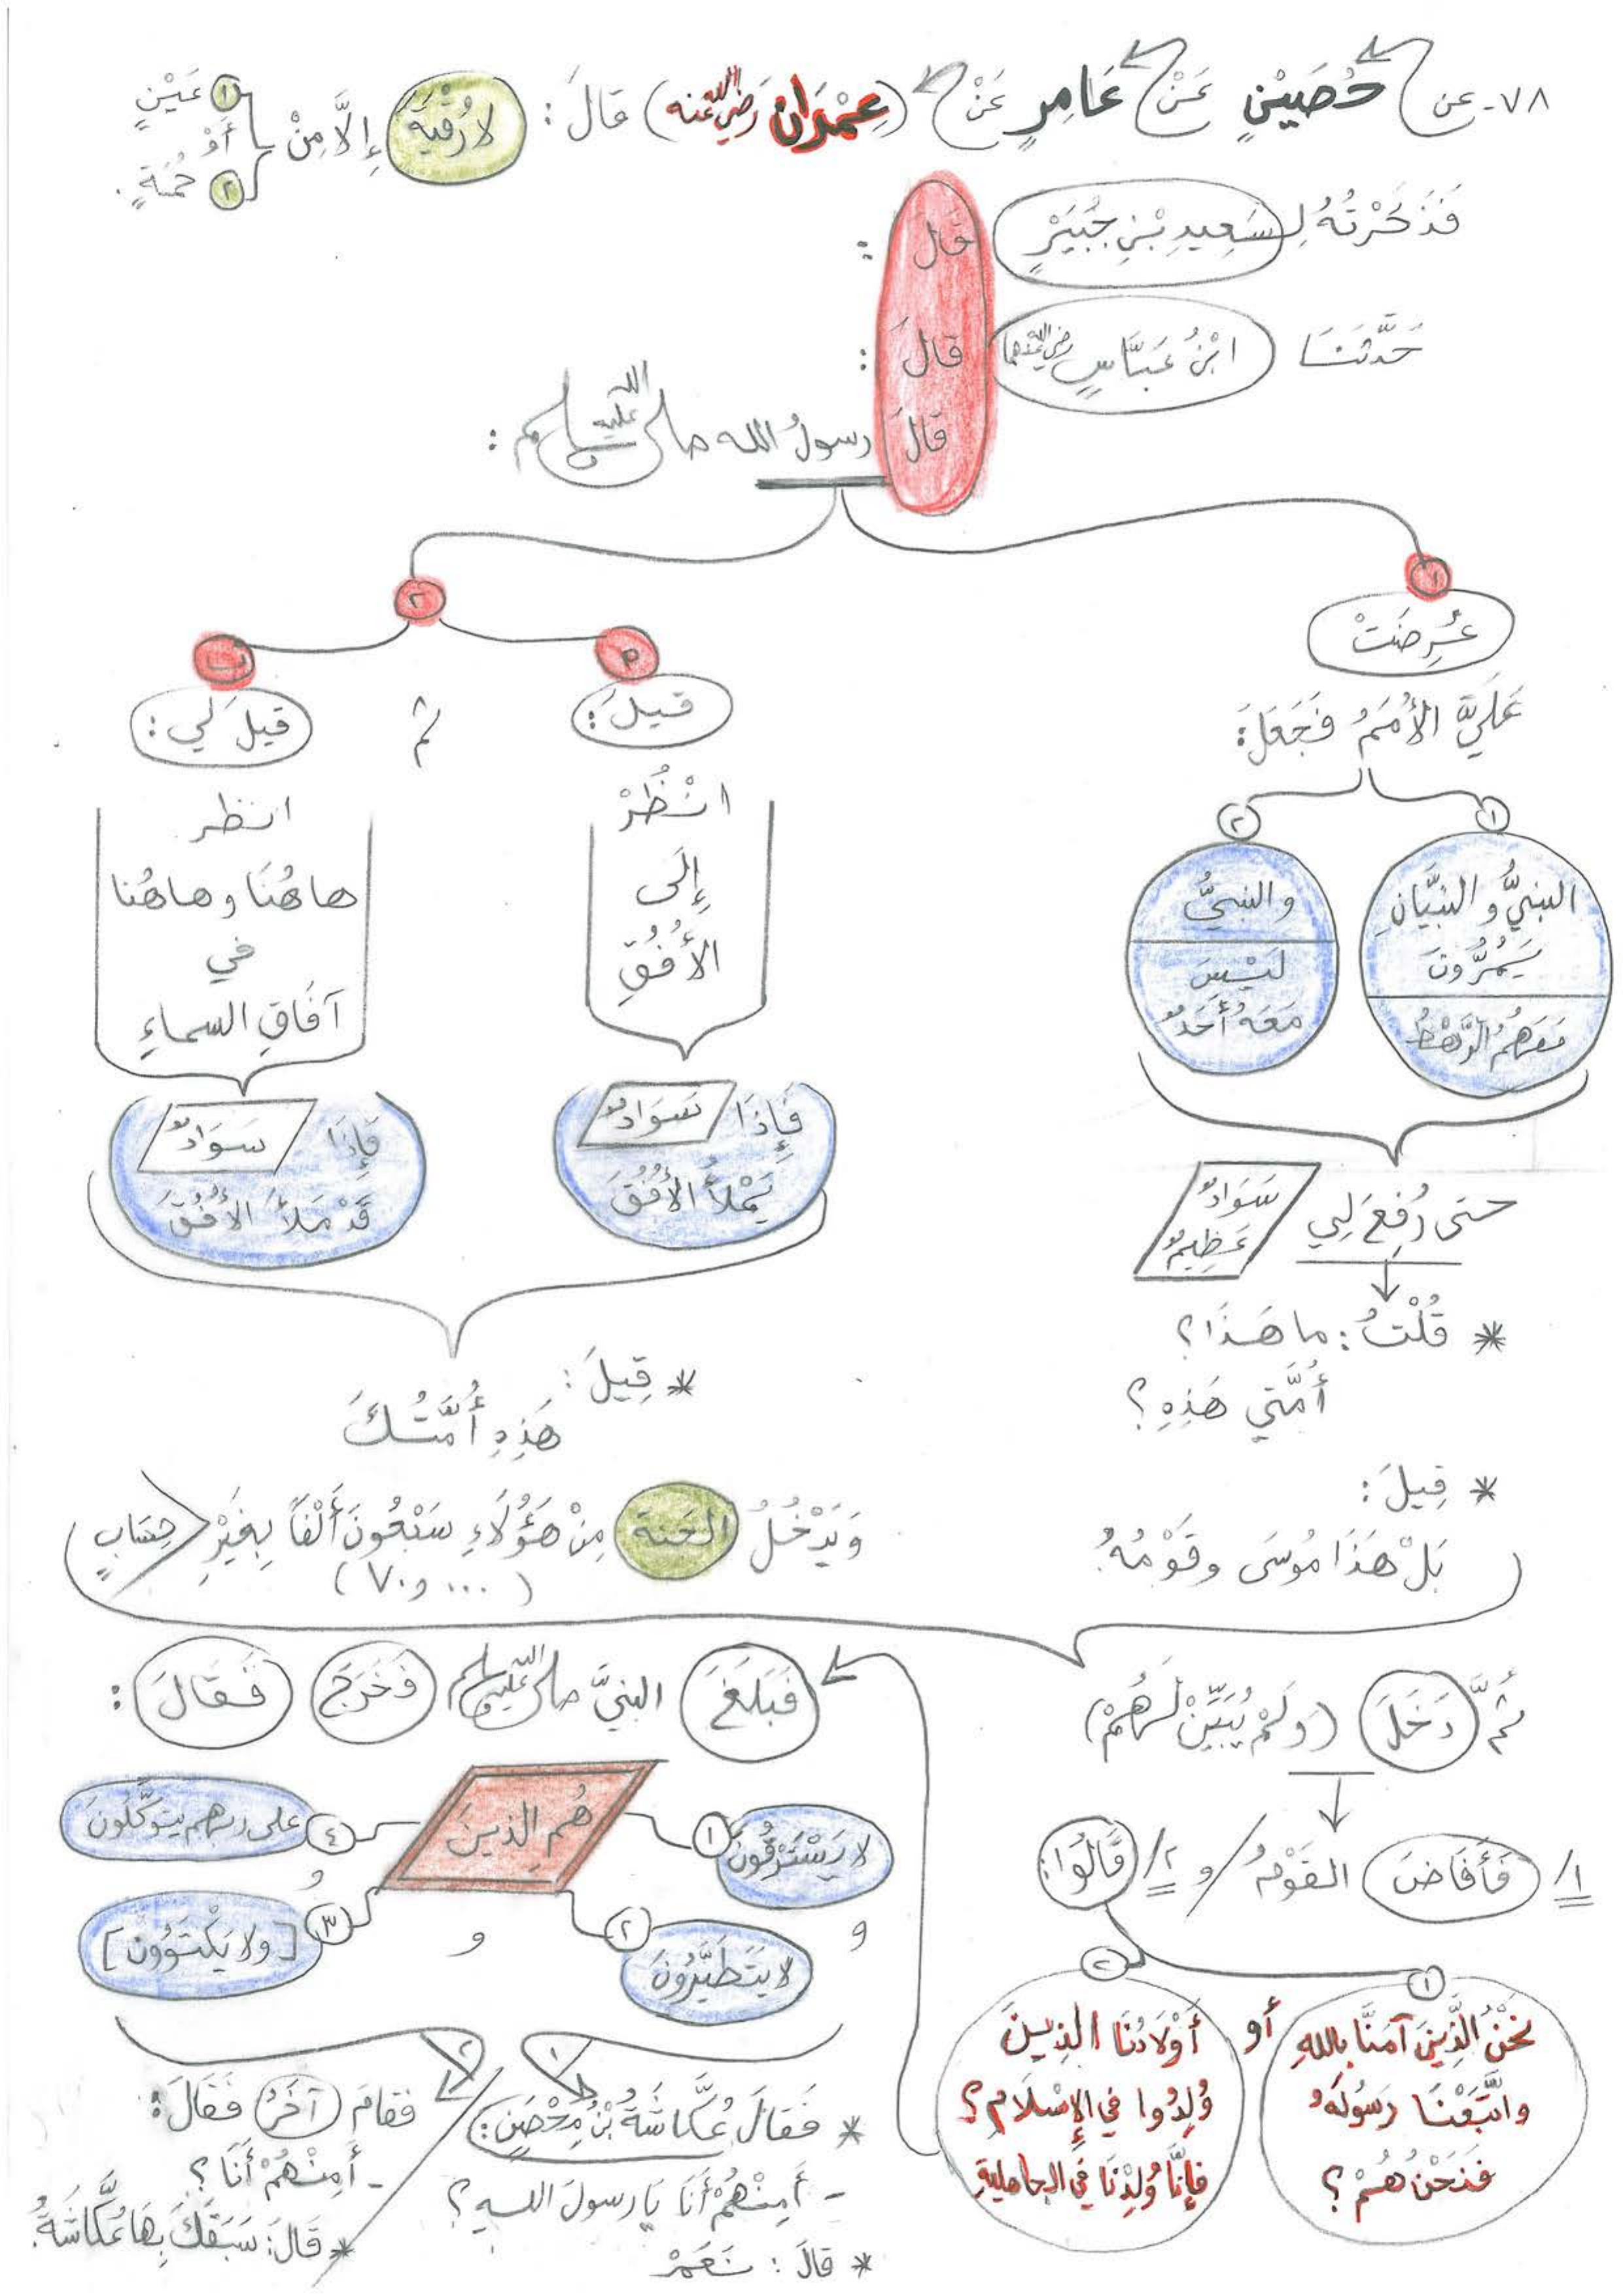 ٧٨- عن حُصَيْنٍ عَنْ عَامِرٍ عَنْ (عِمْرَان رَضِيَ اللهُ عَنه) قَالَ: لا رُقْيَةَ إِلَّا مِنْ
١ عَيْنٍ
أَوْ
٢ حُمَةٍ.
فَذَكَرْتُهُ لِسَعِيدِ بْنِ جُبَيْرٍ قَالَ:
حَدَّثَنَا ابْنُ عَبَّاسٍ رضي الله عنهما قَالَ:
قَالَ رسولُ الله صلى الله عليه وسلم:
١
عُرِضَتْ
عَلَيَّ الأُمَمُ فَجَعَلَ:
١
النبيُّ والنبيَّانِ
يَمُرُّونَ
مَعَهُمُ الرَّهْطُ
٢
والنبيُّ
لَيْسَ
مَعَهُ أَحَدٌ
حتى رُفِعَ لِي سَوَادٌ
عَظِيمٌ
* قُلْتُ: ما هَذَا؟
أُمَّتِي هَذِهِ؟
* قِيلَ:
بَلْ هَذَا مُوسَى وقَوْمُهُ.
٢
قيلَ:
انْظُرْ
إِلَى
الأُفُقِ
فَإِذَا سَوَادٌ
يَمْلَأُ الأُفُقَ
ثم
ب
قيلَ لي:
انظر
هاهُنَا وهاهُنا
في
آفَاقِ السماءِ
فَإِذَا سَوَادٌ
قَدْ مَلَأَ الأُفُقَ
* قِيلَ:
هَذِهِ أُمَّتُكَ
وَيَدْخُلُ الجنة مِنْ هَؤُلَاءِ سَبْعُونَ أَلْفًا بِغَيْرِ حِسَابٍ
(٧٠,٠٠٠)
ثُمَّ دَخَلَ (وَلَمْ يُبَيِّنْ لَهُمْ)
١/ فَأَفَاضَ القَوْمُ / و ٢/ قَالُوا:
١
نَحْنُ الَّذِينَ آمَنَّا باللهِ
واتَّبَعْنَا رَسُولَهُ
فَنَحْنُ هُمْ؟
أو
٢
أَوْلَادُنَا الذِينَ
وُلِدُوا في الإِسْلَامِ؟
فإِنَّا وُلِدْنَا في الجاهليةِ
فَبَلَغَ النبيَّ صلى الله عليه وسلم فَخَرَجَ فَقَالَ:
هُم الذينَ
١ لا يَسْتَرْقُونَ
و
٢ لا يَتَطَيَّرُونَ
و
٣ [ولا يَكْتَوُونَ]
و
٤ على ربهم يتوكَّلُونَ
١
* فَقَالَ عُكَّاشَةُ بْنُ مِحْصَنٍ:
- أَمِنْهُمْ أَنَا يَا رسولَ اللهِ؟
* قَالَ: نَعَمْ
٢
فقامَ آخَرُ فَقَالَ:
- أَمِنْهُمْ أَنَا؟
* قَالَ: سَبَقَكَ بِهَا عُكَّاشَةُ.